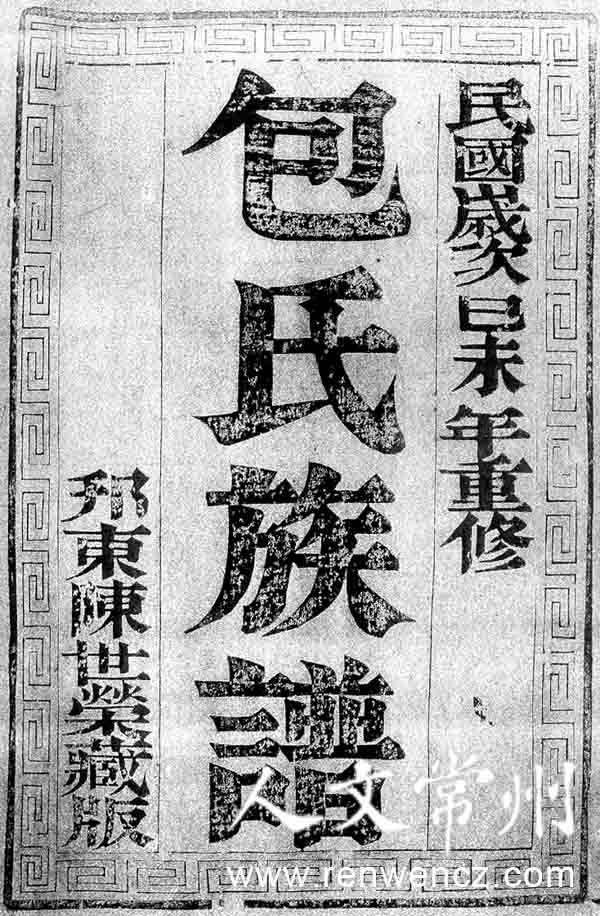 民國歲次己未年重修
包氏族譜
邦東陳世榮藏版
人文常州
www.renwencz.com